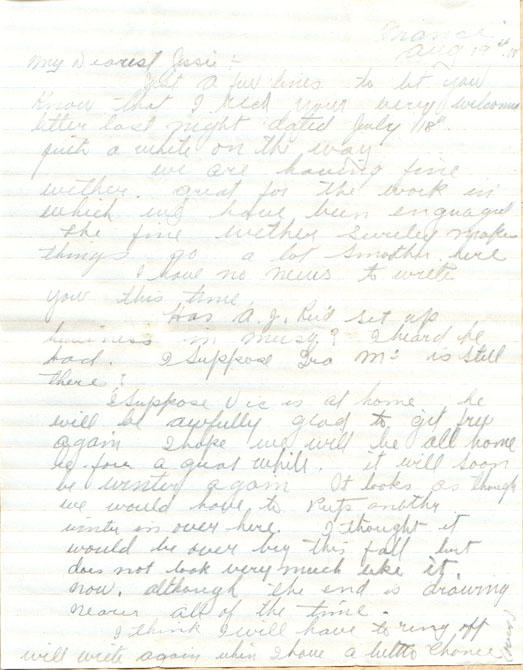 France
Aug 19th 18
My Dearest Jessie:-
Just a few lines to let you
Know that I recd your very welcome
letter last night dated July 18th
quit a while on the way
we are having fine
wether. great for the work in
which we have been enguaged
the fine wether surely makes
things go a lot smother here
I have no news to write
you this time.
Has A. J. Reid set up
business in ? I heard he
had. I suppose Mc is still
there?
I suppose Vic is at home he
will be awfully glad to git free
again I hope we will be all home
be-fore a great while. it will soon
be winter again It looks as though
we would have to put another
winter in over here. I thought it
would be over by this fall but
does not look very much like it
now. although the end is drawing
nearer all of the time.
I think I will have to ring off
will write again when I have a better chance